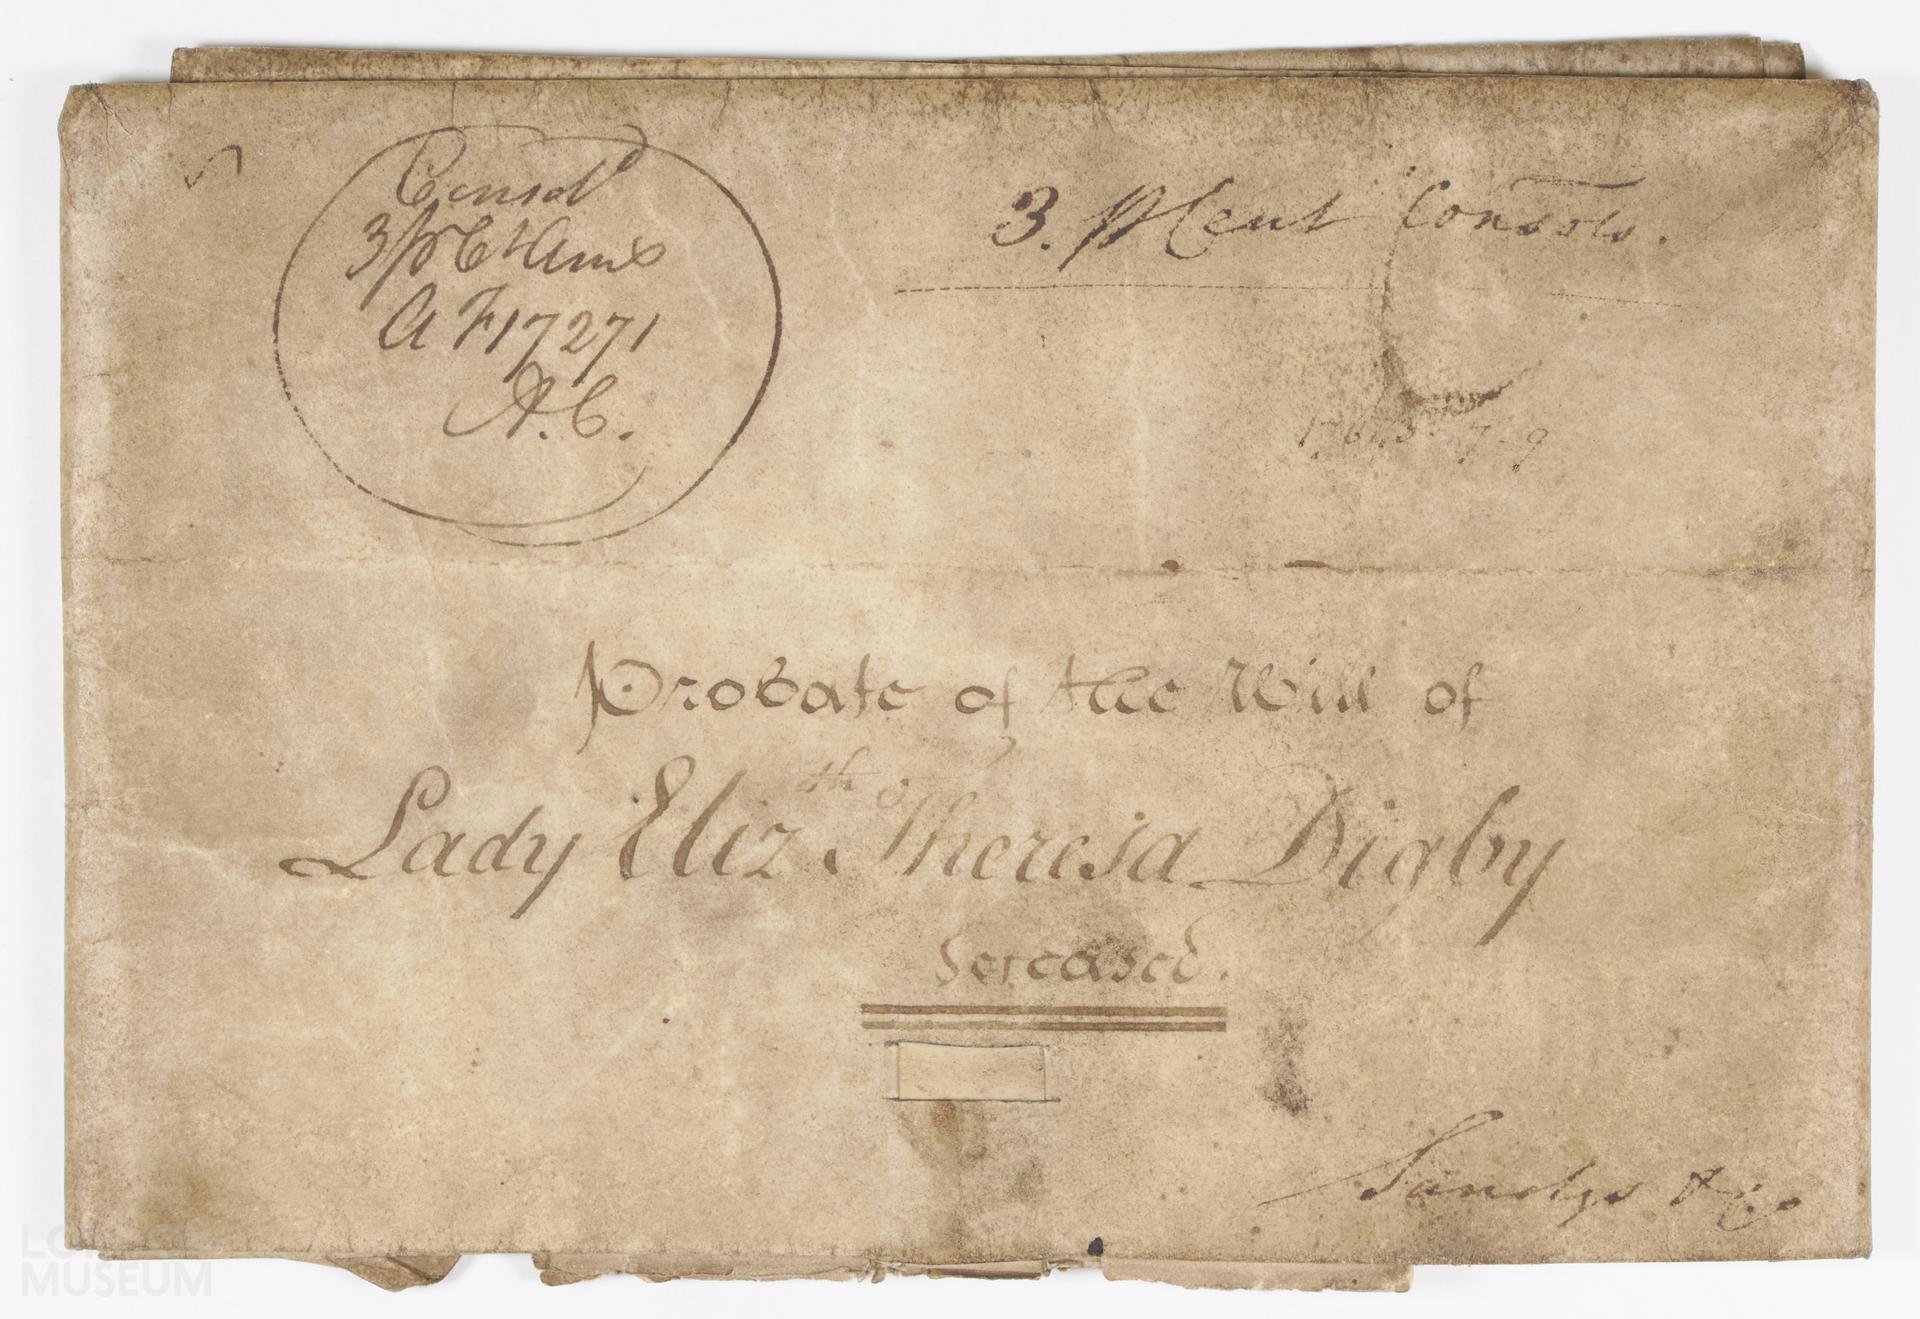 Consol^d
3 p C^t Ann^s
A F 17271
A.C.
3. p Cent Consols.
Probate of the Will of
Lady Eliz^th Theresa Digby
deceased.
Sandys & Co.
LONDON
MUSEUM